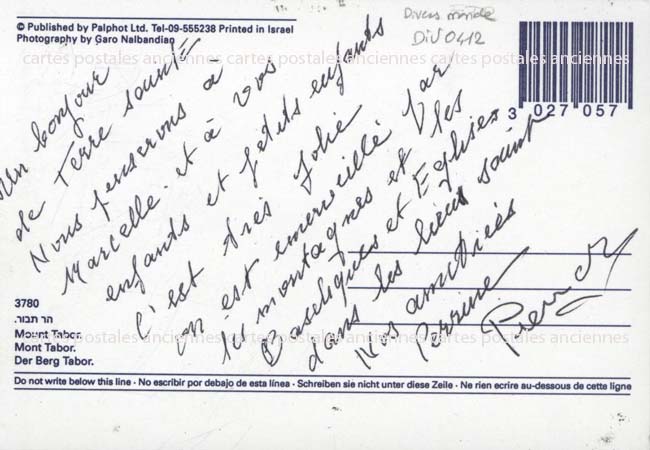 © Published by Palphot Ltd. Tel-09-555238 Printed in Israel
Photography by Garo Nalbandian
Divers monde
DIV0412
cartes postales anciennes cartes postales anciennes cartes postales anciennes
3 027 057
Un bonjour
de Terre sainte
Nous penserons à
Marcelle et à vos
enfants et petits enfants
C'est très jolie
on est emerveillé par
les montagnes et les
Basiliques et Eglises
dans les lieux saint
Nos amitiés
Perrine
Pierrot
3780
הר תבור.
Mount Tabor.
Mont Tabor.
Der Berg Tabor.
cartes postales anciennes cartes postales anciennes cartes postales anciennes
Do not write below this line · No escribir por debajo de esta línea · Schreiben sie nicht unter diese Zeile · Ne rien ecrire au-dessous de cette ligne